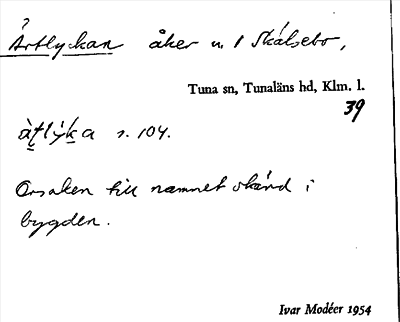 Ärtlyckan åker n. 1 Skälsebo,
Tuna sn, Tunaläns hd, Klm. l.
39
s. 104.
Orsaken till namnet okänd i
bygden.
Ivar Modéer 1954